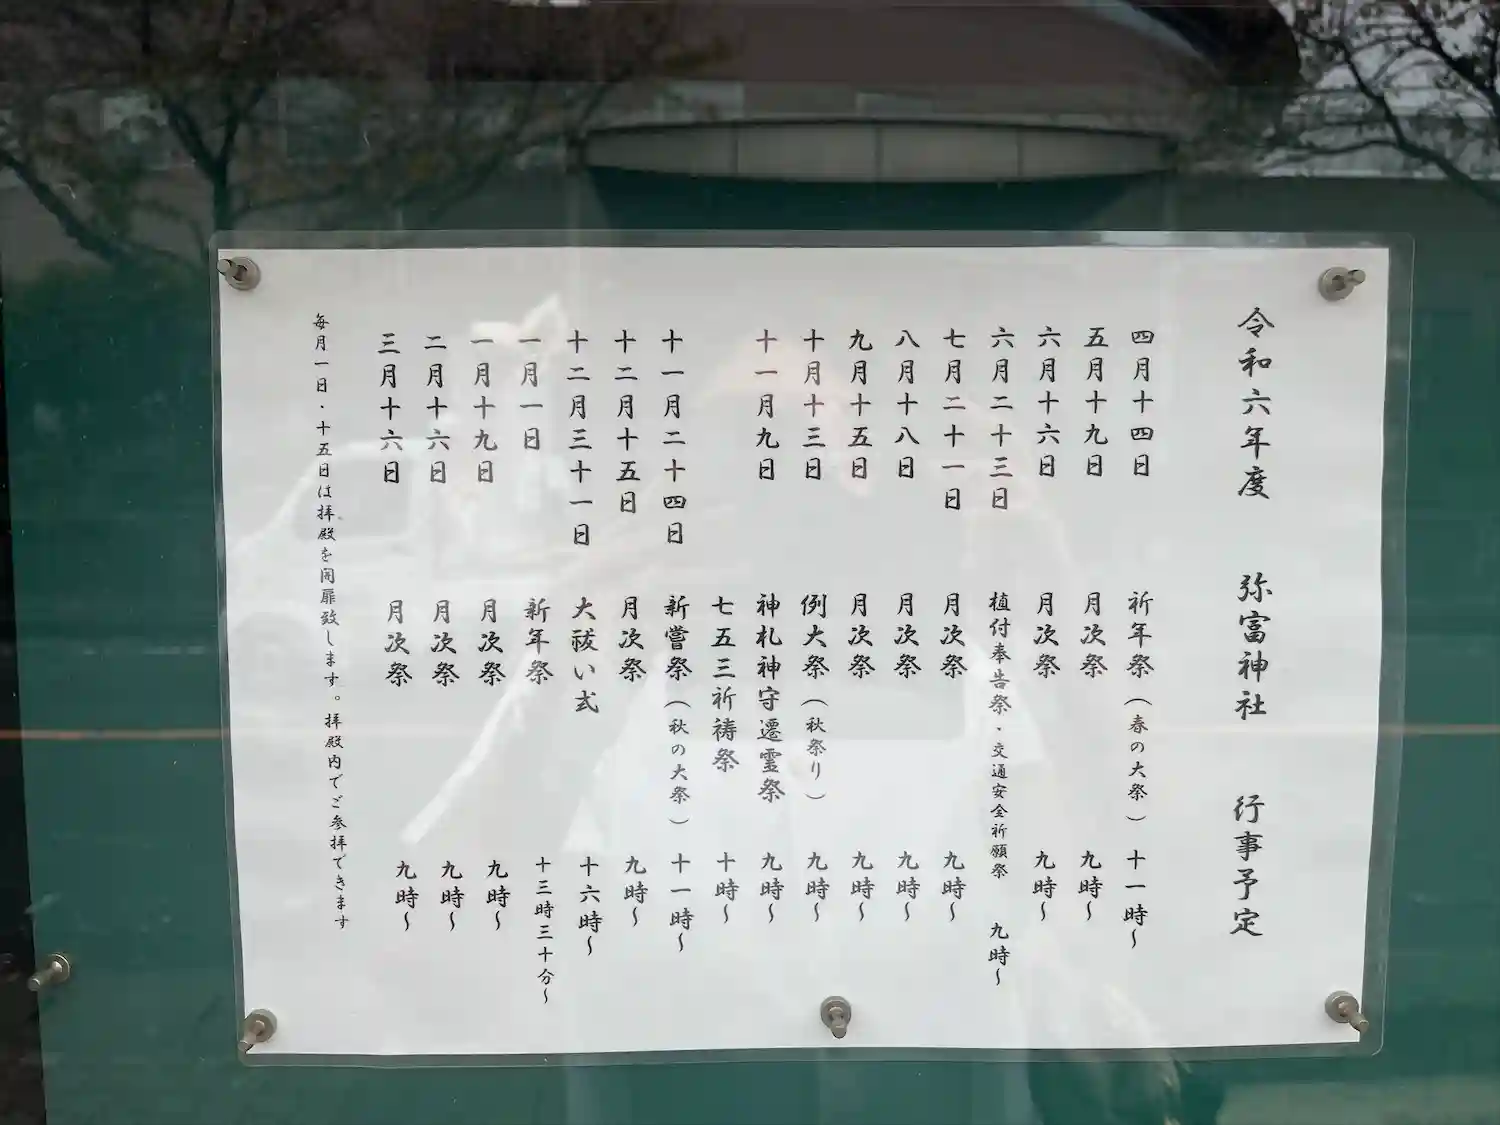 令和六年度 弥富神社 行事予定
四月十四日 祈年祭（春の大祭） 十一時～
五月十九日 月次祭 九時～
六月十六日 月次祭 九時～
六月二十三日 植付奉告祭・交通安全祈願祭 九時～
七月二十一日 月次祭 九時～
八月十八日 月次祭 九時～
九月十五日 月次祭 九時～
十月十三日 例大祭（秋祭り） 九時～
十一月九日 神札神守遷霊祭 九時～
七五三祈祷祭 十時～
十一月二十四日 新嘗祭（秋の大祭） 十一時～
十二月十五日 月次祭 九時～
十二月三十一日 大祓い式 十六時～
一月一日 新年祭 十三時三十分～
一月十九日 月次祭 九時～
二月十六日 月次祭 九時～
三月十六日 月次祭 九時～
毎月一日・十五日は拝殿を開扉致します。拝殿内でご参拝できます